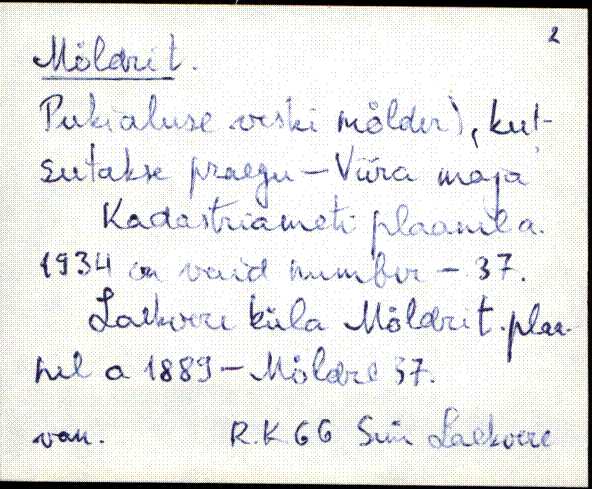 2
Möldri t.
Pukialuse veski mölder), kut-
sutakse praegu – Viira maja
Kadastriameti plaanil a.
1934 on vaid number – 37.
Laekvere küla Möldri t. plaa-
nil a 1889 – Möldre 37.
van. R.K 66 Sim Laekvere